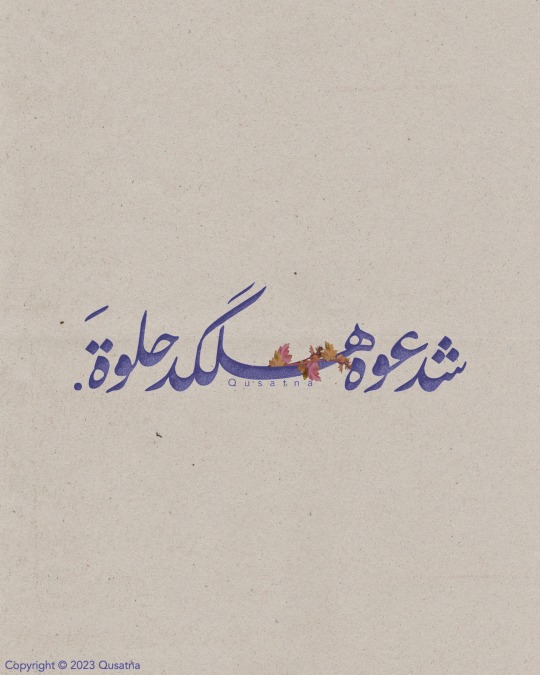 شدعوة هلگد حلوةَ.
Qusatna
Copyright © 2023 Qusatña